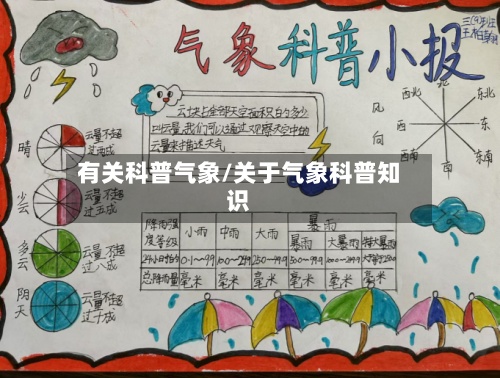 气象科普小报
三(9)班
北
西北
东北
风向
西
东
西南
东南
南
云块占全部天空面积的多少
叫云量,我们可以通过观察天空中的
云量来描述天气
晴
云量不超
过三成
有关科普气象/关于气象科普知
识
少云
云量不超
过五成
多云
云量不超
过八成
阴天
云量不超
过十成
降雨强度等级
小雨
中雨
大雨
暴雨
暴雨
大暴雨
特大暴雨
总降雨量
毫米
毫米
毫米
毫米
毫米
毫米